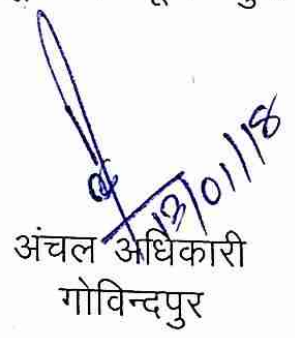 13/01/18
अंचल अधिकारी
गोविन्दपुर